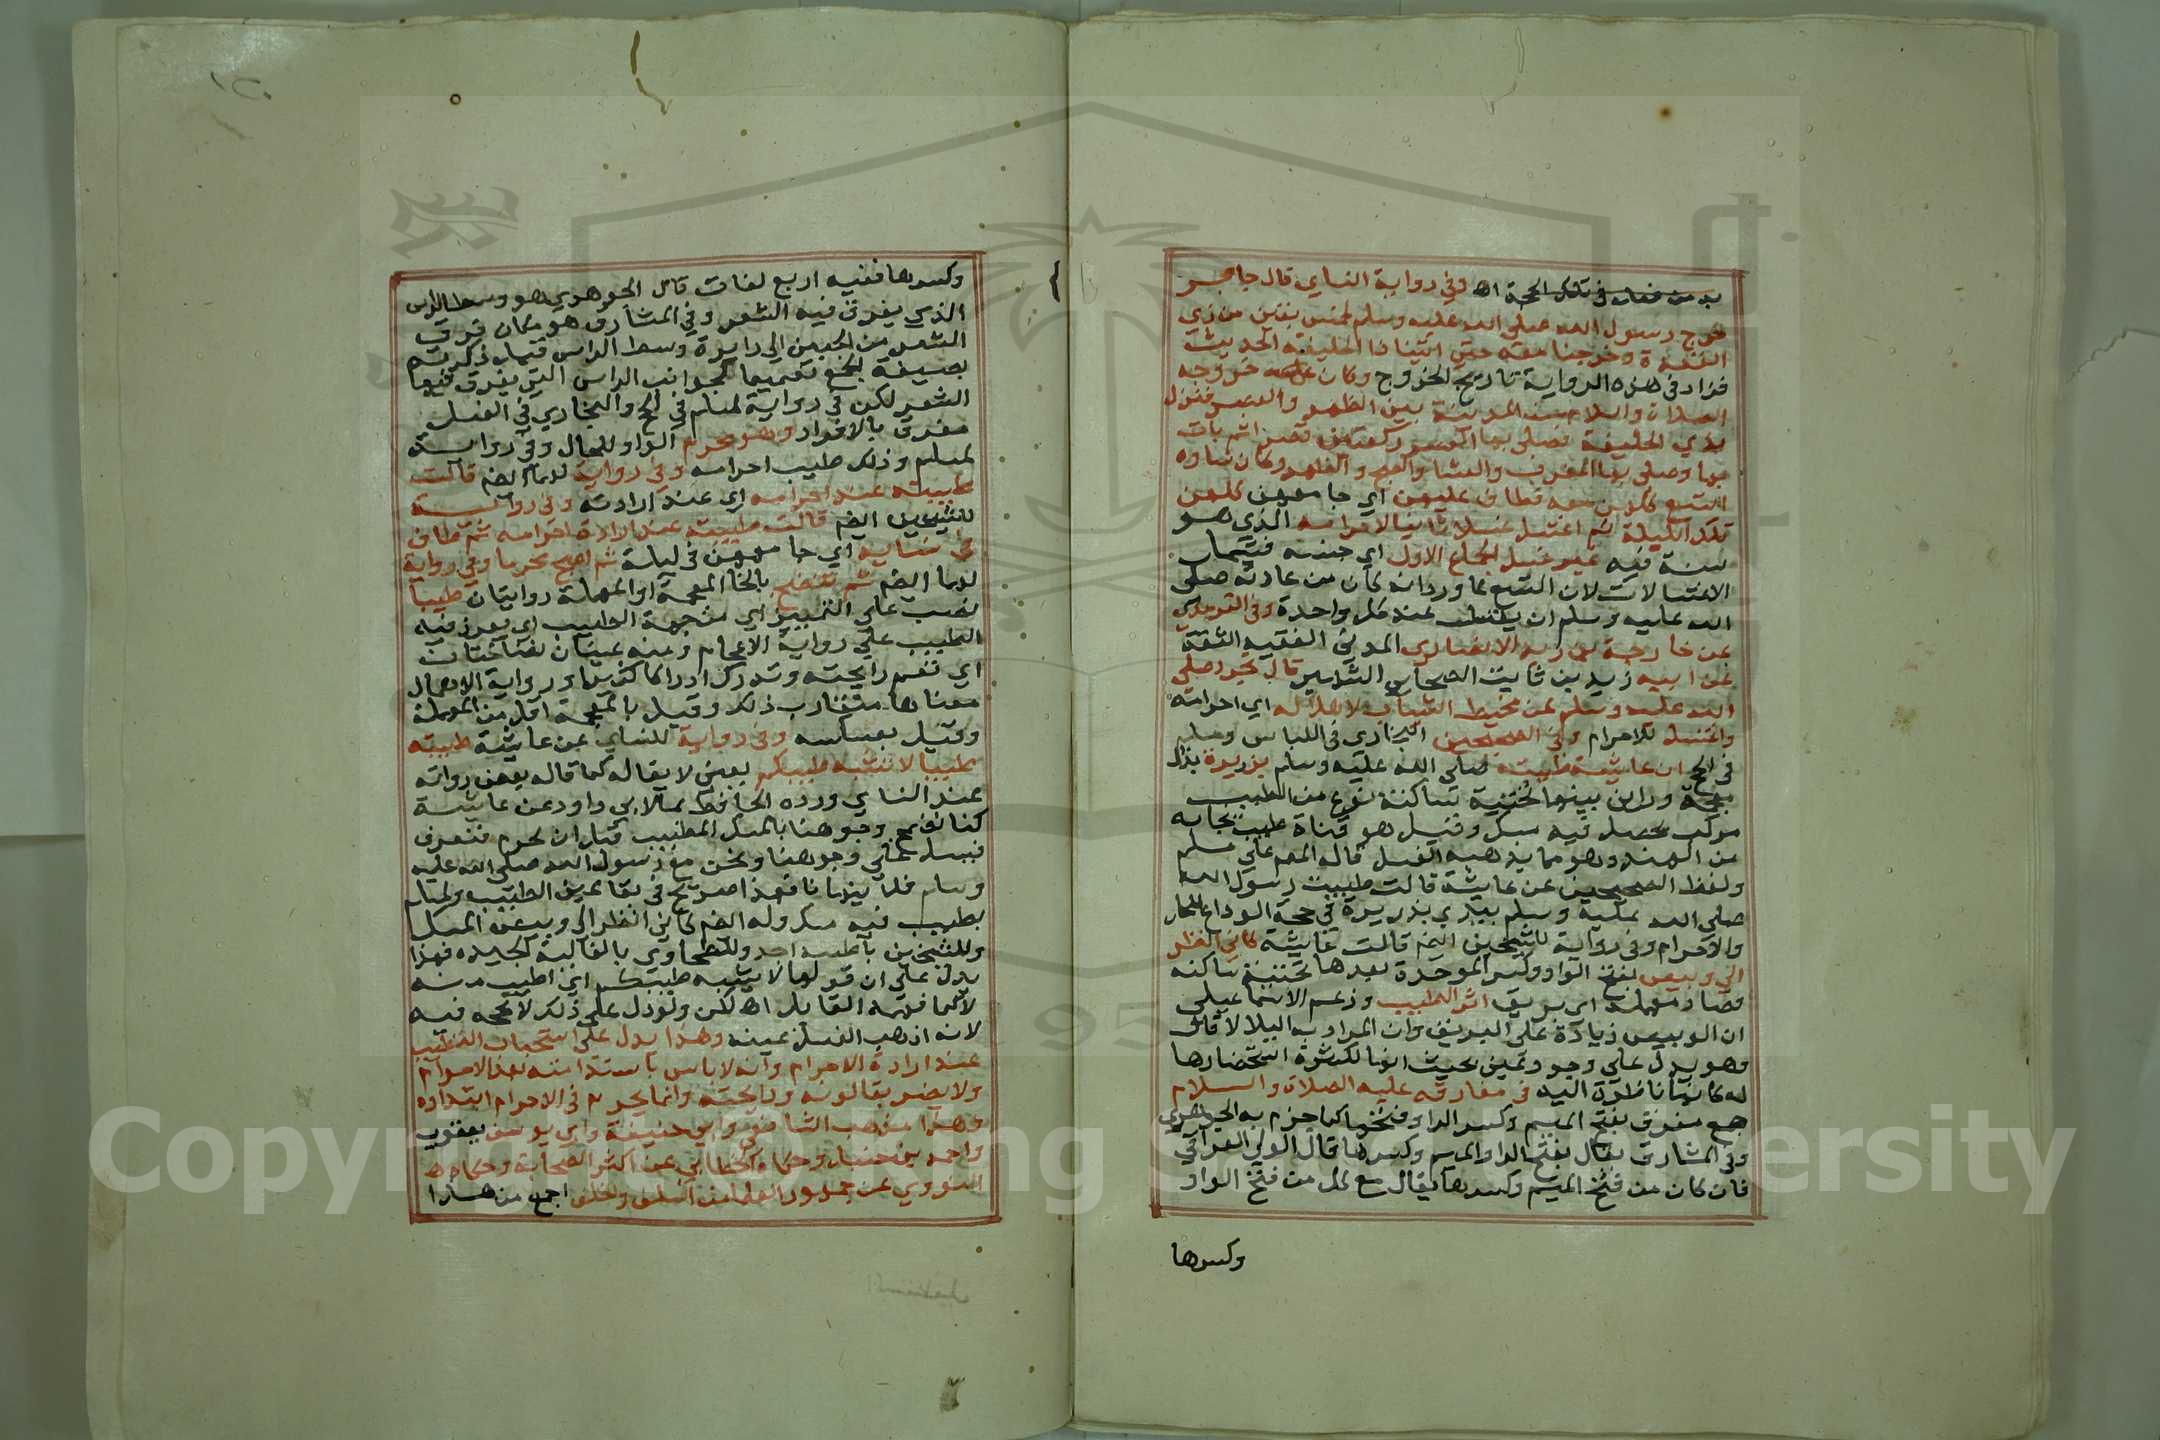 بد من فعله في تلك الحجة اه وفي رواية النساي قال جابر
خرج رسول الله صلى الله عليه وسلم لخمس بقين من ذي
القعدة وخرجنا معه حتى اتينا ذا الحليفة الحديث
فزاد في هذه الرواية تاريخ الخروج وكان خروجه
الصلاة والسلام من المدينة بين الظهر والعصر فنزل
بذي الحليفة فصلى بها العصر ركعتين قصرا ثم بات
بها وصلى بها المغرب والعشا والصبح والظهر وكان نساوه
التسع كلهن معه فطاف عليهن اي جامعهن كلهن
تلك الليلة ثم اغتسل غسلا ثانيا لاحرامه الذي هو
سنة فيه غير غسل الجماع الاول اي جنسه فيشمل
الاغتسالات لان التسع لما وردانه كان من عادته صلى
الله عليه وسلم ان يغتسل عند كل واحدة وفي الترمذي
عن خارجة بن زيد الانصاري المدني الفقيه الثقة
عن ابيه زيد بن ثابت الصحابي الشهير قال تجرد صلى
الله عليه وسلم عن مخيط الثياب لاهلاله اي احرامه
واغتسل للاحرام وفي الصحيحين البخاري في اللباس ومسلم
في الحج ان عايشة طيبته صلى الله عليه وسلم بذريرة بذال
معجمة وراين بينهما تحتية ساكنة نوع من الطيب
مركب يحصل فيه مسك وقيل هو قناة طيب يجابه
من الهند وهو مما يذهبه الغسل قاله المم على مسلم
ولفظ الصحيحين عن عايشة قالت طيبت رسول الله
صلى الله عليه وسلم بيدي بذريرة في حجة الوداع للحل
والاحرام وفي رواية للشيخين ايضم قالت عايشة كاني انظر
الى وبيص بفتح الواو وكسر الموحدة بعدها تحتية ساكنة
فصاد مهملة اي بريق اثر الطيب وزعم الاسماعيلي
ان الوبيص زيادة على البريق وان المراد به التلالا قال
وهو يدل على وجود عين بحيث انها لكثرة استحضارها
له كانها ناظرة اليه في مفارقه عليه الصلاة والسلام
جمع مفرق بفتح الميم وكسر الرا وفتحها كما جزم به الجوهري
وفي المشارق يقال بفتح الرا والميم وكسرها قال الولي العراقي
فان كان من فتح الميم وكسرها يقال مع كل من فتح الواو
وكسرها
وكسرها ففيه اربع لغات قال الجوهري هو وسط الراس
الذي يفرق فيه الشعر وفي المشارق هو مكان فرق
الشعر من الجبين الى دايرة وسط الراس قيل ذكرته
بصيغة الجمع تعميما لجوانب الراس التي يفرق فيها
الشعر لكن في رواية لمسلم في الحج والبخاري في الغسل
مفرق بالافراد وهو محرم الواو للحال وفي رواية
لمسلم وذلك طيب احرامه وفي رواية لهما ايضم قالت
طيبته عند احرامه اي عند ارادته وفي رواية
للشيخين ايضم قالت طيبته عند ارادة احرامه ثم طاف
في نسايه اي جامعهن في ليلة ثم اصبح محرما وفي رواية
لهما ايضم ثم ينضخ بالخا المعجمة او المهملة روايتان طيبا
نصب على التمييز اي من جهة الطيب اي يفور فيه
الطيب على رواية الاعجام ومنه عينان نضاختان
اي تشم رايحته وتدرك ادراكا كثيرا ورواية الاهمال
معناها متقارب ذلك وقيل بالمعجمة اقل من المهملة
وقيل بعكسه وفي رواية للنساي عن عايشة طيبته
طيبا لا يشبه طيبكم يعني لا بقاله كما قاله بعض رواته
عند النساي ورده الحافظ بما لابي داود عن عايشة
كنا نضمخ وجوهنا بالمسك المطيب قبل ان نحرم فنعرق
فيسيل على وجوهنا ونحن مع رسول الله صلى الله عليه
وسلم فلا ينهانا فهذا صريح في بقا عين الطيب ولمسلم
بطيب فيه مسك وله ايضم كاني انظر الى وبيص المسك
وللشيخين باطيب اجد وللطحاوي بالغالية الجيده فهذا
يدل على ان قولها لا يشبه طيبكم اي اطيب منه
لا كما فهمه القايل اه لكن ولو دل على ذلك لا حجة فيه
لانه اذهب الغسل عينه وهذا يدل على استحباب التطيب
عند ارادة الاحرام وانه لا باس باستدامته بعد الاحرام
ولا يضر بقا لونه ورايحته وانما يحرم في الاحرام ابتداوه
وهذا مذهب الشافعي وابي حنيفة وابي يوسف يعقوب
واحمد بن حنبل وحكاه الخطابي عن اكثر الصحابة وحكاه
النووي عن جمهور العلما من السلف والخلف اجمع من هذا
Copyright © King Saud University